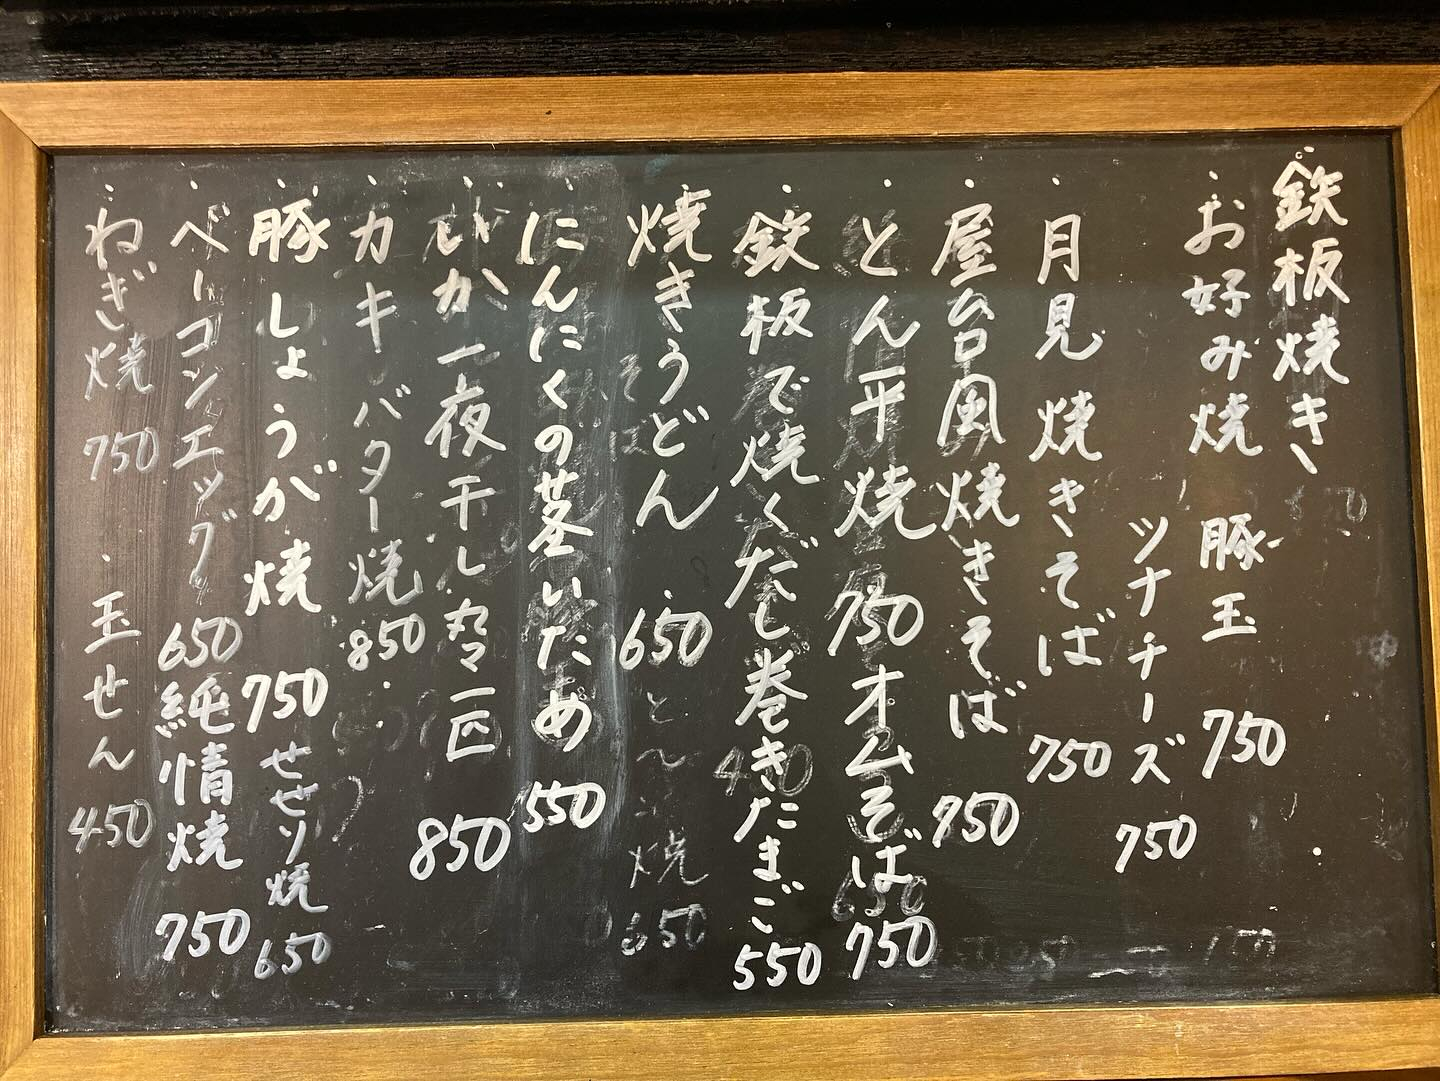 鉄板焼き
お好み焼 豚玉 750
ツナチーズ 750
月見焼きそば 750
屋台風焼きそば 750
とん平焼 750
オムそば 750
鉄板で焼くだし巻きたまご 550
焼きうどん 650
焼 650
にんにくの茎いため 550
いか一夜干し丸々一匹 850
カキバター焼 850
豚しょうが焼 750
せせり焼 650
ベーコンエッグ 650
純情焼 750
ねぎ焼 750
玉せん 450